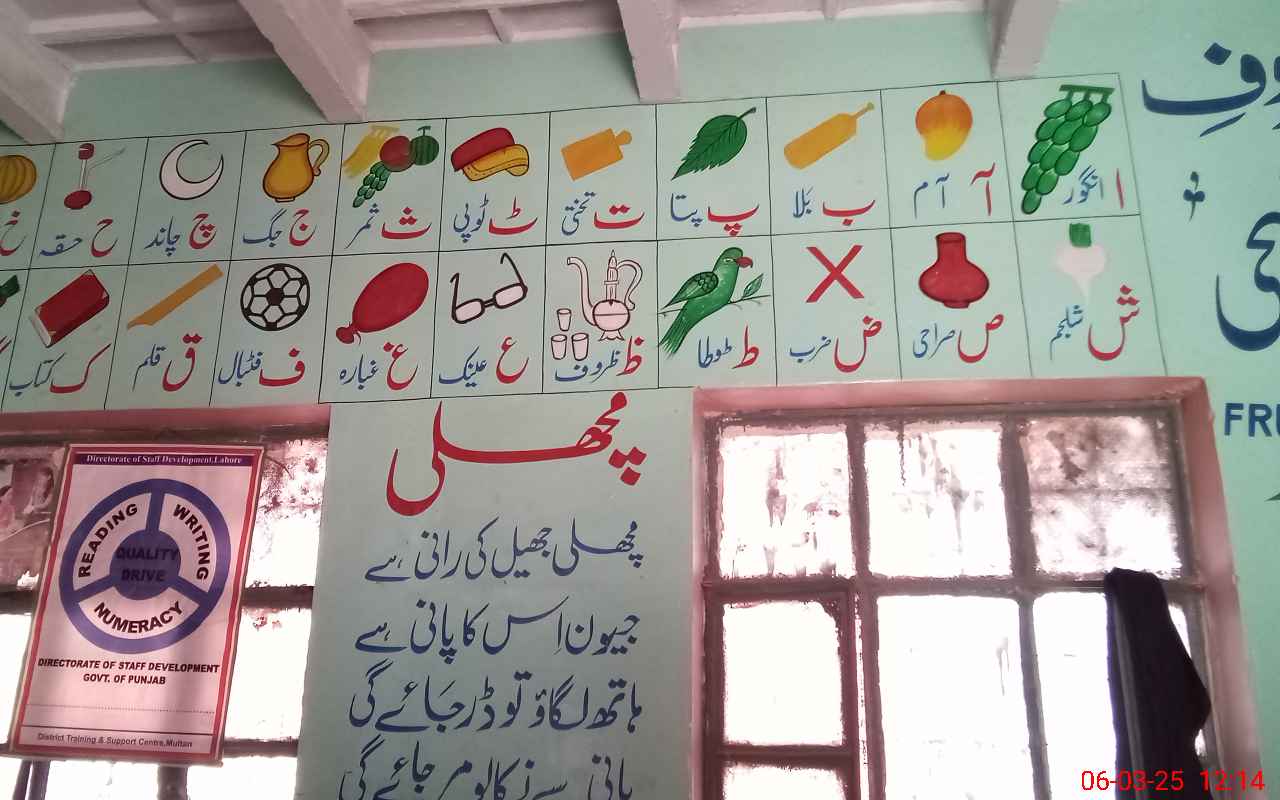 ا انگور
آ آم
ب بلا
پ پتا
ت تختی
ٹ ٹوپی
ث ثمر
ج جگ
چ چاند
ح حقہ
خ
ش شلجم
ص صراحی
ض ضرب
ط طوطا
ظ ظروف
ع عینک
غ غبارہ
ف فٹبال
ق قلم
ک کتاب
مچھلی
مچھلی جھیل کی رانی ہے
جیون اِس کا پانی ہے
ہاتھ لگاؤ تو ڈر جائے گی
پانی سے نکالو مر جائے گی
Directorate of Staff Development,Lahore
READING
WRITING
QUALITY
DRIVE
NUMERACY
DIRECTORATE OF STAFF DEVELOPMENT
GOVT. OF PUNJAB
District Training & Support Centre,Multan
FRU
06-03-25 12:14